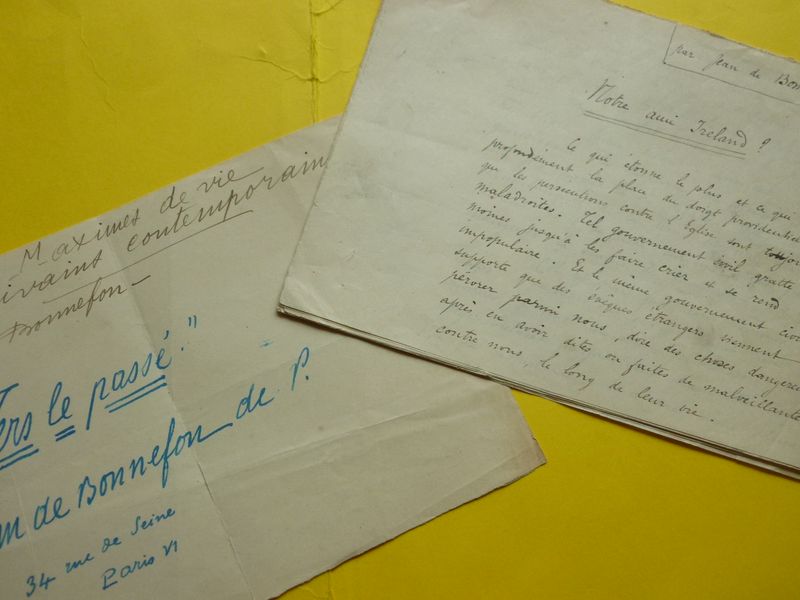 Maximes de vie
ivains contemporain
Bonnefon—
ers le passé."
n de Bonnefon de P.
34 rue de Seine
Paris VI
par Jean de Bon
Notre ami Ireland ?
Ce qui étonne le plus et ce qui
profondément la place du doigt providentiel
que les persécutions contre l'Église sont toujou
maladroites. Tel gouvernement civil gratte
moines jusqu'à les faire crier et se rend
impopulaire. Et le même gouvernement civi
supporte que des évêques étrangers viennent
pérorer parmi nous, dire des choses dangereu
après en avoir dites ou faites de malveillante
contre nous, le long de leur vie.